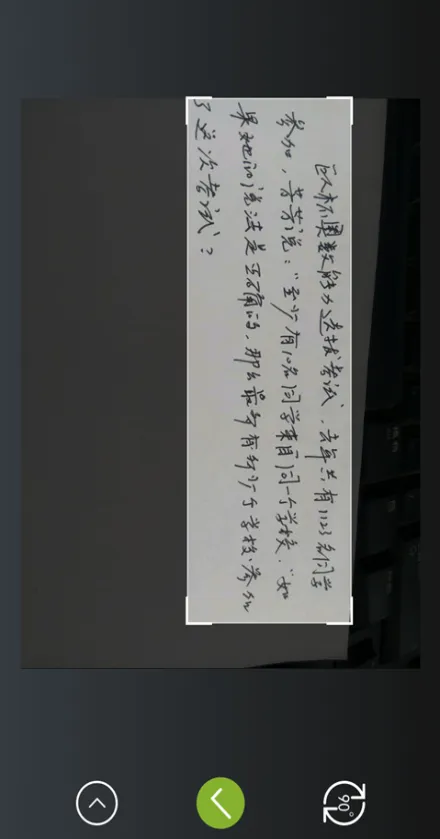 巨人杯奥数能力选拔考试，去年共有1123名同学
参加，芳芳说：“至少有10名同学来自同一个学校.”如
果她的说法是正确的，那么最多有多少个学校参加
了这次考试？
90°